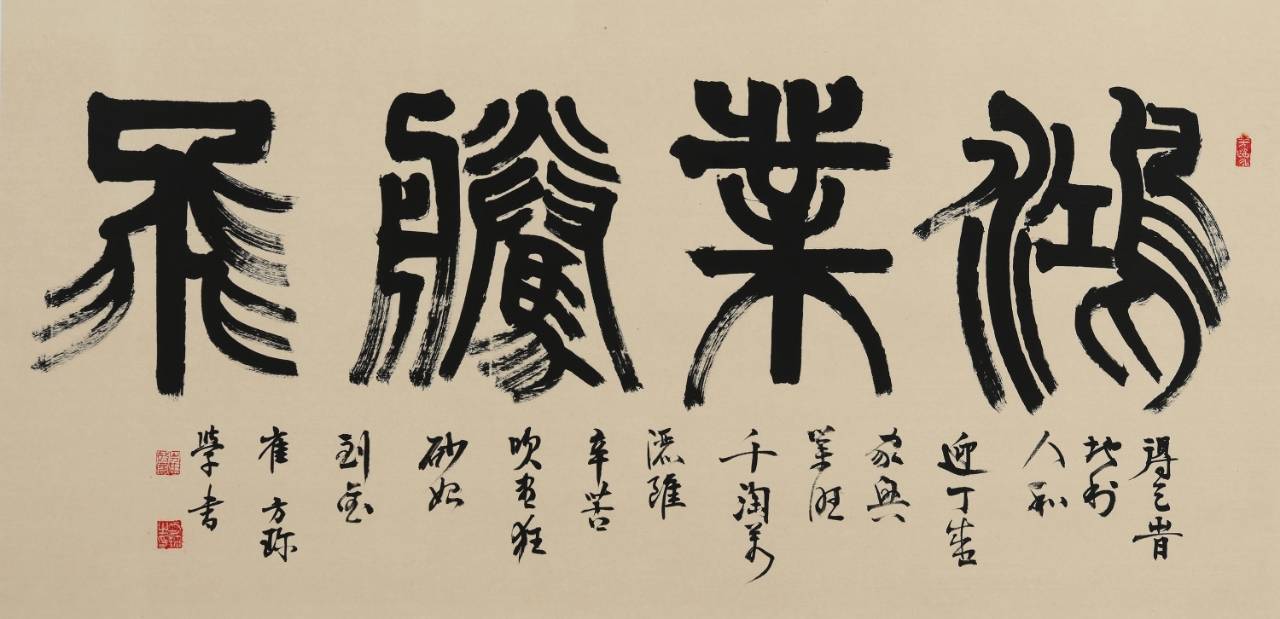 鴻業騰飛
得天旹
地利
人和
迎丁盛
家興
業旺
千淘萬
漉雖
辛苦
吹盡狂
砂始
到金
崔方珍
學書